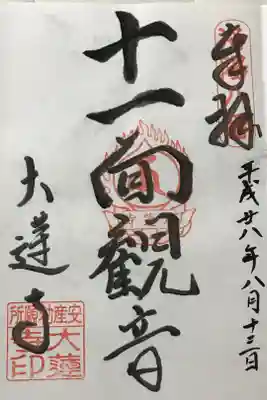 奉拝
平成廿八年八月十三日
十一面觀音
大蓮寺
安産勅願所
大蓮
寺印